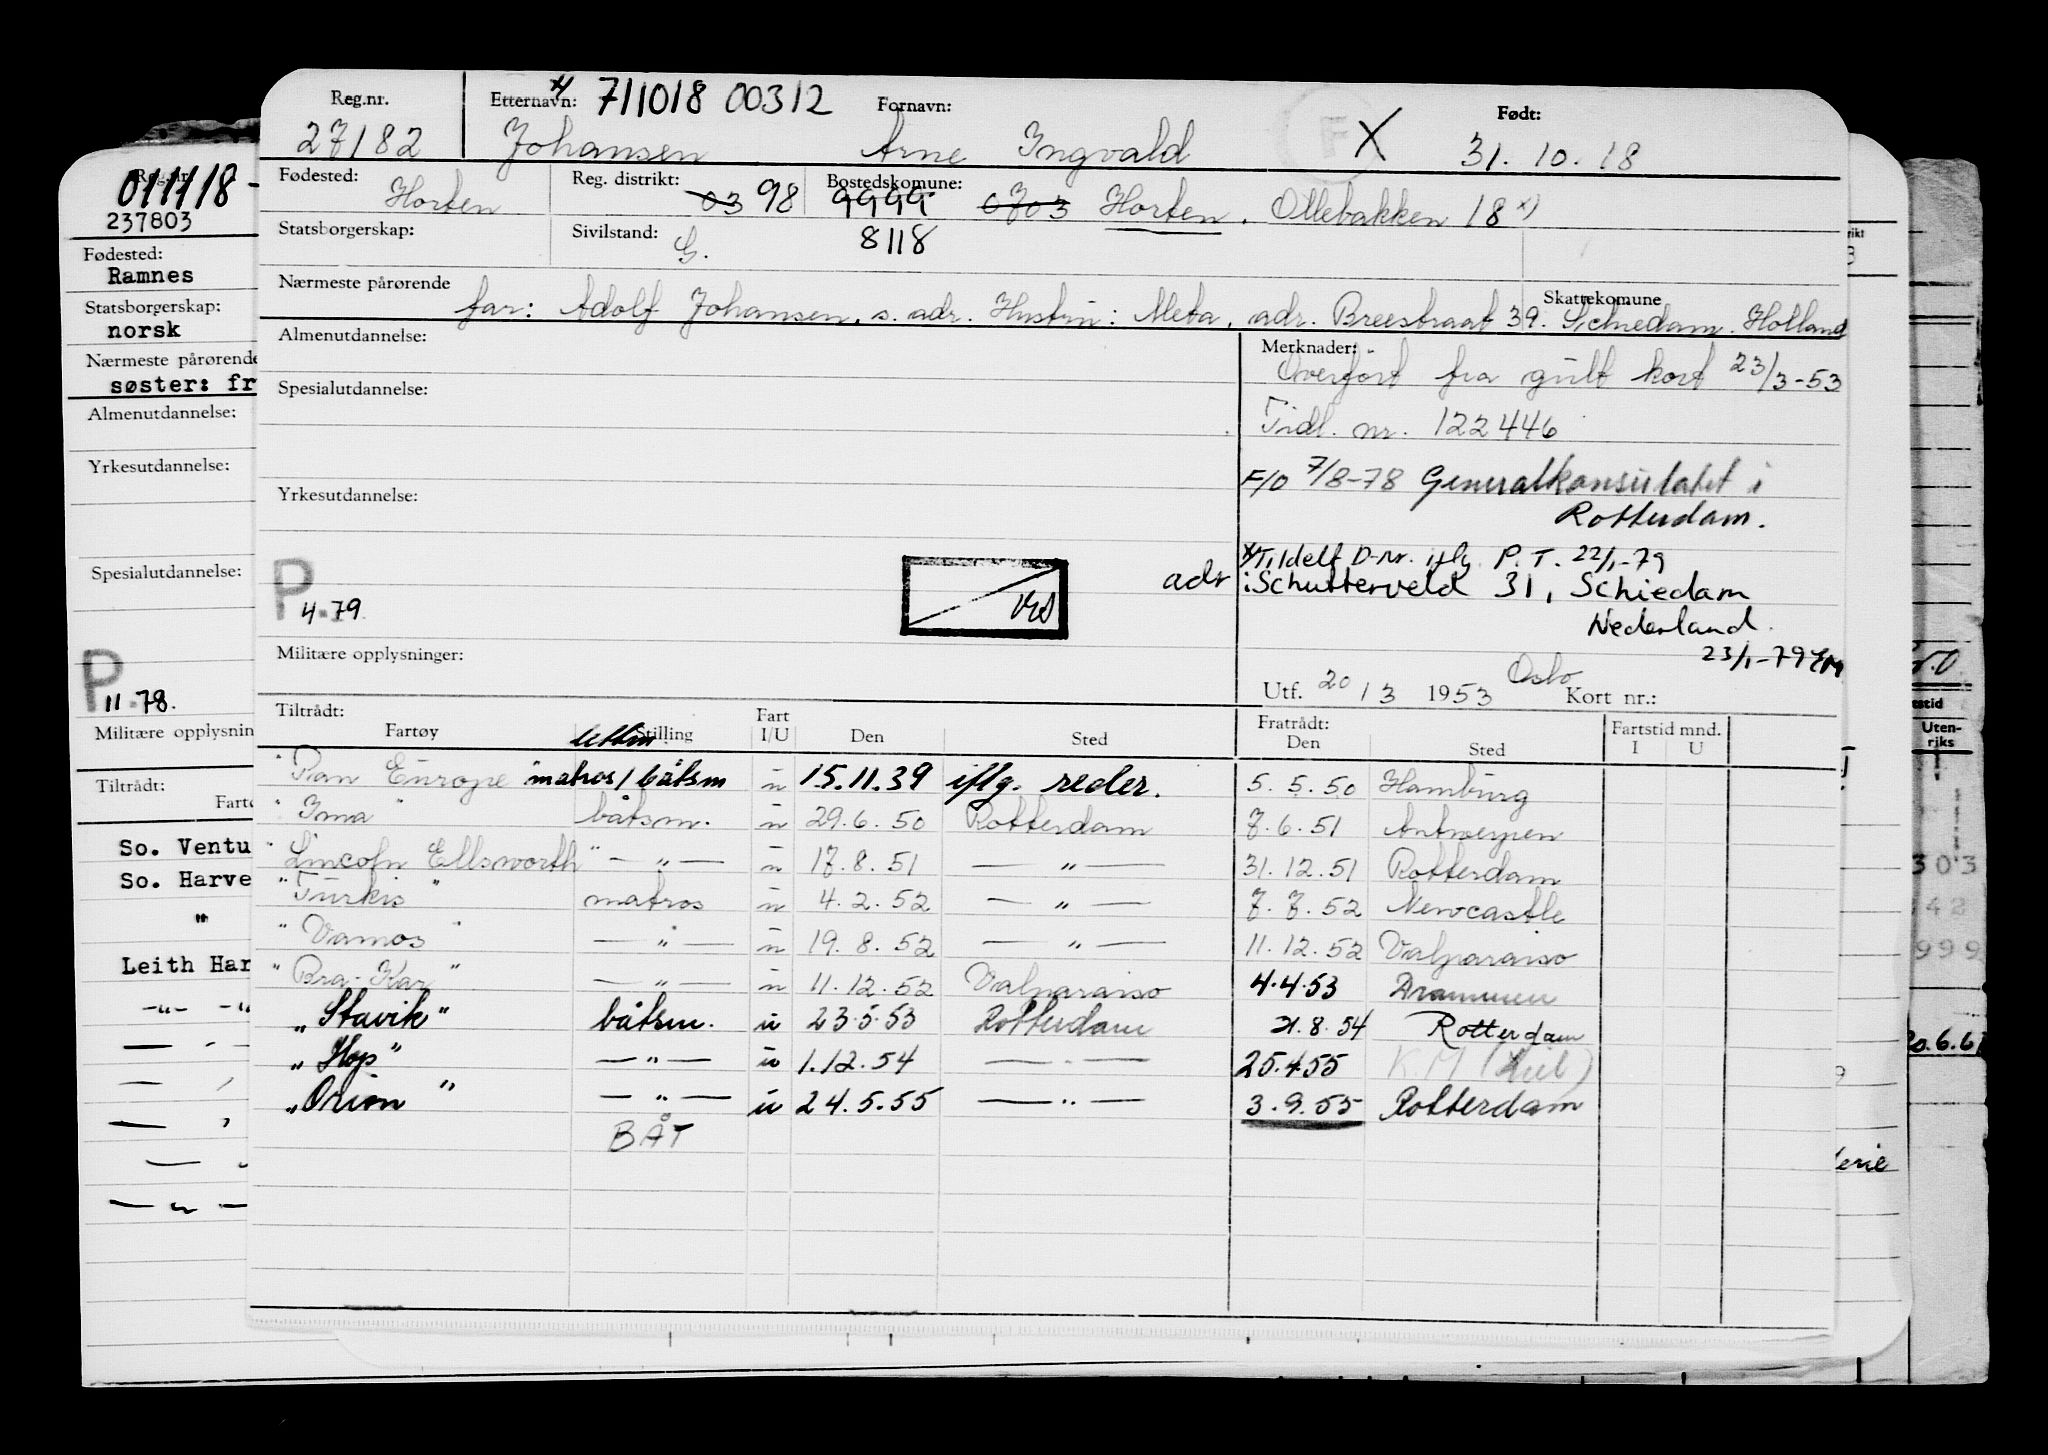 Reg.nr. Etternavn: x) 711018 00312 Fornavn: Født:
27182 Johansen Arne Ingvald F X 31. 10. 18
Fødested: Horten Reg. distrikt: 03 98 Bostedskomune: 9999 0703 Horten. Ollebakken 18 x)
Statsborgerskap: Sivilstand: G. 8118
Nærmeste pårørende Skattekomune
far: Adolf Johansen, s. adr. Hustru: Meta, adr. Breestraat 39. Schiedam. Holland
Almenutdannelse: Merknader:
Overført fra gult kort 23/3-53
Spesialutdannelse:
Tidl. nr. 122446
F/O 7/8-78 Generalkonsulatet i
Yrkesutdannelse:
Rotterdam.
x) Tildelt D-nr. iflg. P.T. 22/1-79
adr: Schutterveld 31, Schiedam
P 4.79
Nederland.
23/1-79
Militære opplysninger:
Utf. 20/3 1953 Oslo Kort nr.:
Tiltrådt: Fratrådt: Fartstid mnd.
Fartøy Stilling Fart I/U Den Sted Den Sted I U
lettm
" Pan Europe matros/båtsm u 15.11.39 iflg. reder. 5. 5. 50 Hamburg
" Ima " båtsm. u 29. 6. 50 Rotterdam 7. 6. 51 Antwerpen
" Lincoln Ellsworth " — " — u 17. 8. 51 — " — 31. 12. 51 Rotterdam
" Turkis " matros u 4. 2. 52 — " — 7. 7. 52 Newcastle
" Vamos " — " — u 19. 8. 52 — " — 11. 12. 52 Valparaiso
" Bra-Kar " — " — u 11. 12. 52 Valparaiso 4.4.53 Drammen
" Stavik " båtsm. u 23.5.53 Rotterdam 21.8.54 Rotterdam
" Hop " — " — u 1.12.54 — " — 25.4.55 K.M (Kiel)
" Orion " — " — u 24.5.55 — " — 3.9.55 Rotterdam
BÅT
Reg.nr.
011118 -
237803
Fødested:
Ramnes
Statsborgerskap:
norsk
Nærmeste pårørende
søster: fr
Almenutdannelse:
Yrkesutdannelse:
Spesialutdannelse:
P 11.78.
Militære opplysnin
Tiltrådt:
Fartø
So. Ventu
So. Harve
"
Leith Har
-"- -"
— " —
Uten-
riks
303
42
999
20.6.6